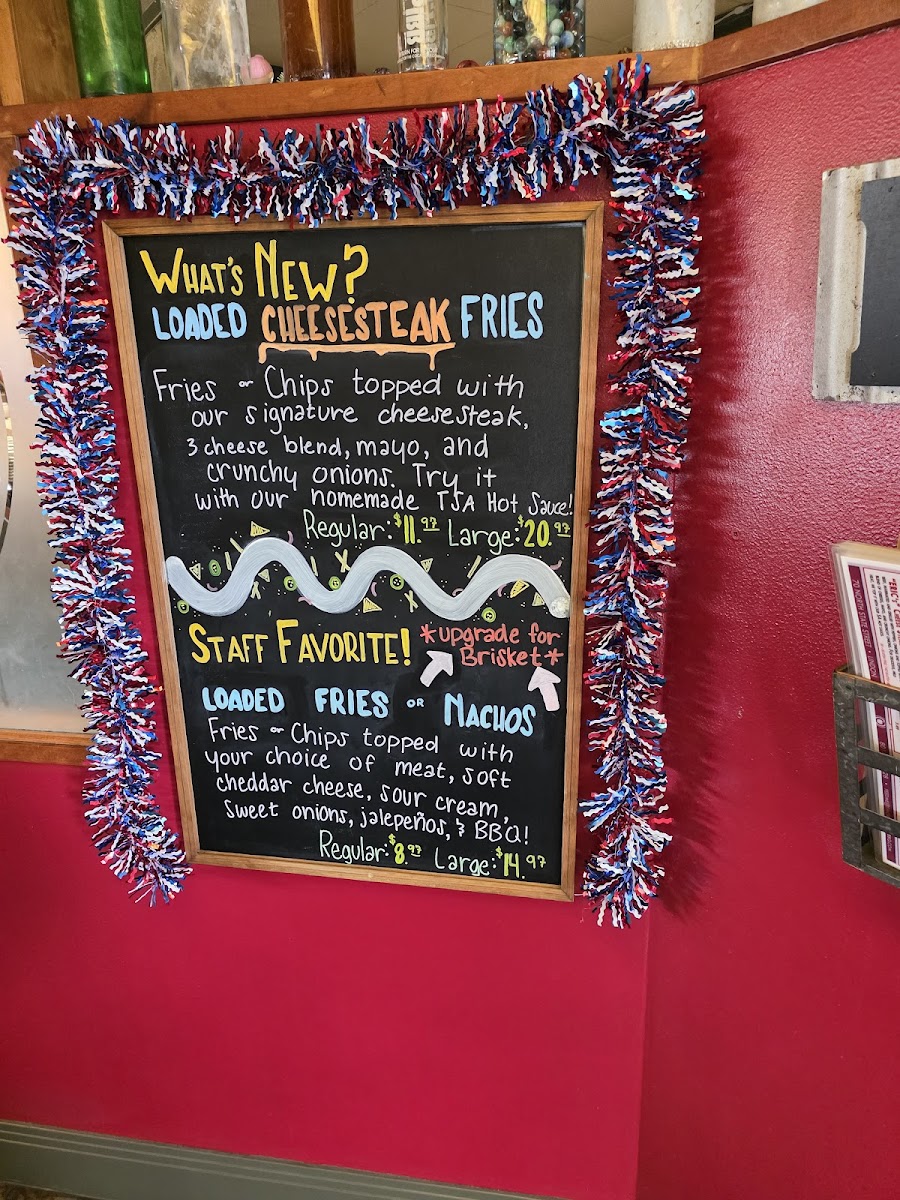 WHAT'S NEW?
LOADED CHEESESTEAK FRIES
Fries or Chips topped with
our signature cheesesteak,
3 cheese blend, mayo, and
crunchy onions. Try it
with our homemade TSA Hot Sauce!
Regular: $11.97 Large: $20.97
STAFF FAVORITE! *upgrade for
Brisket*
LOADED FRIES OR NACHOS
Fries or Chips topped with
your choice of meat, soft
cheddar cheese, sour cream,
sweet onions, jalepeños, & BBQ!
Regular: $8.97 Large: $14.97